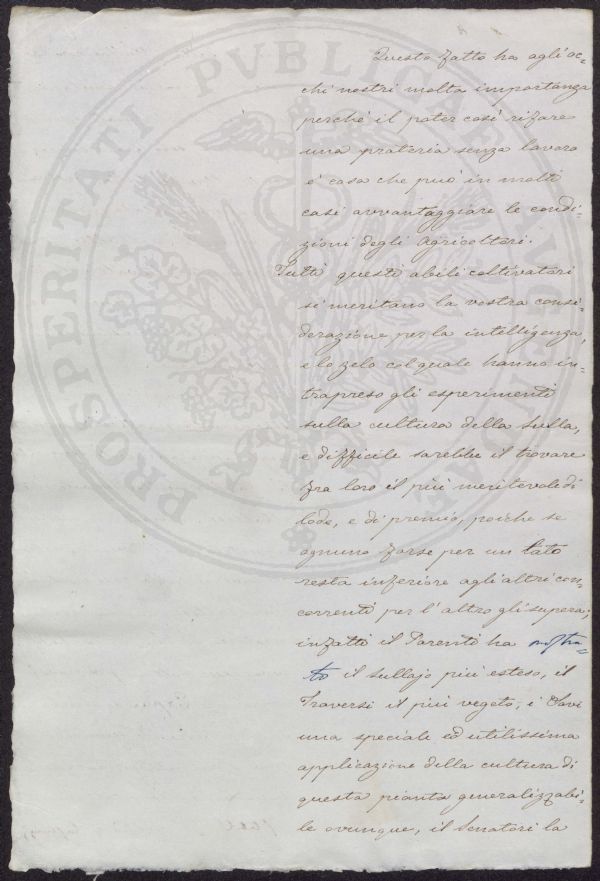 Questo fatto ha agli oc=
chi nostri molta importanza
perché il poter così rifare
una prateria senza lavoro
e' cosa che può in molti
casi avvantaggiare le condi=
zioni degli Agricoltori.
Tutti questi abili coltivatori
si meritano la vostra consi=
derazione per la intelligenza,
e lo zelo col quale hanno in=
trapreso gli esperimenti
sulla cultura della Sulla,
e difficile sarebbe il trovare
fra loro il più meritevole di
lode, e di premio, poiche se
ognuno forse per un lato
resta inferiore agli altri con=
correnti per l'altro gli supera;
infatti il Parenti ha mostra=
to il sullajo più esteso, il
Traversi il più vegeto, i Savi
una speciale ed utilissima
applicazione della cultura di
questa pianta generalizzabi=
le ovunque, il Senatori la
PROSPERITATI PVBLICAE AVGENDAE